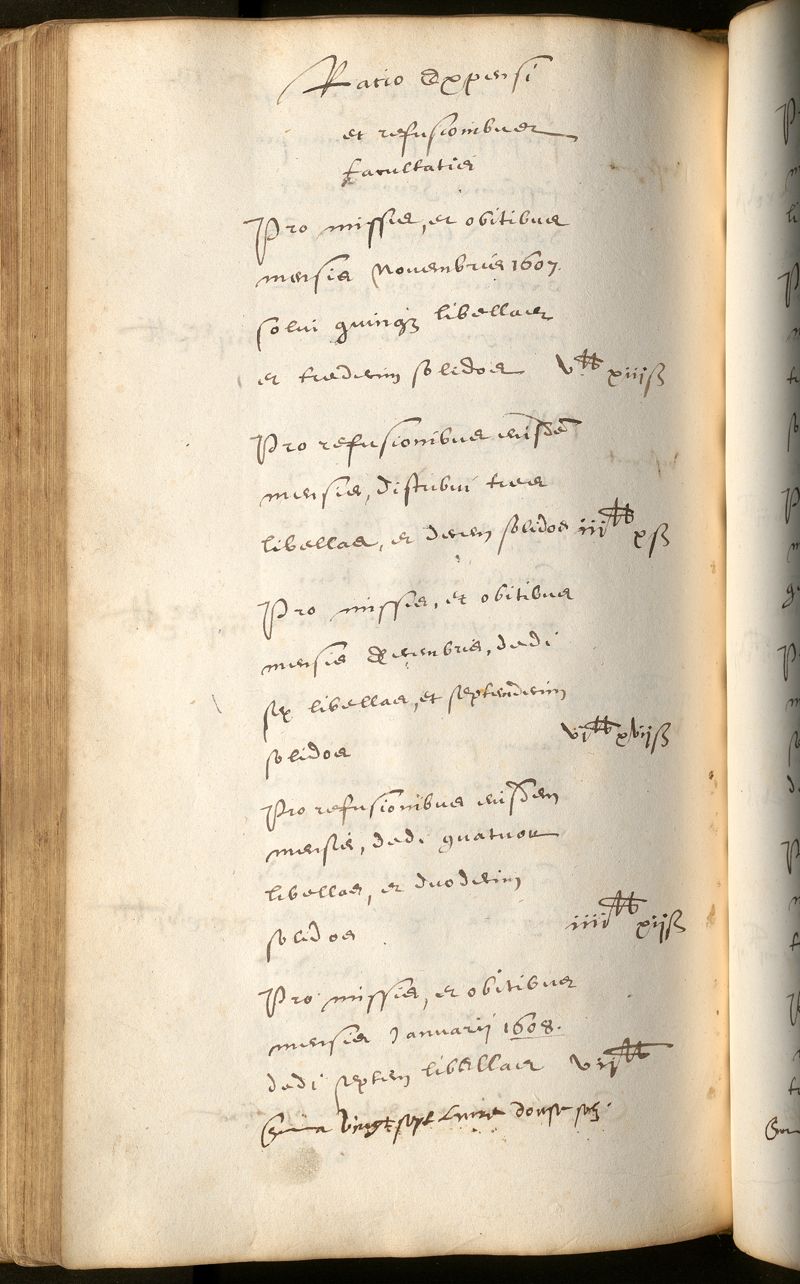 Ratio Expensi
et refusionibus
facultatis
Pro missis, et obitibus
mensis Novembris 1607.
solui quinqȝ libellas
et tredecim solidos v tt xiij ß
Pro refusionibus eiusdē
mensis, distribui tres
libellas, et decem solidos iij tt x ß
Pro missis, et obitibus
mensis Decembris, dedi
sex libellas, et septendecim
solidos vi tt xvij ß
Pro refusionibus eiusdem
mensis, dedi quatuor
libellas, et duodecim
solidos iiij tt xij ß
Pro missis, et obitibus
mensis Januarij 1608.
dedi septem libellas vij tt
Soma vingt sept livre douse solz